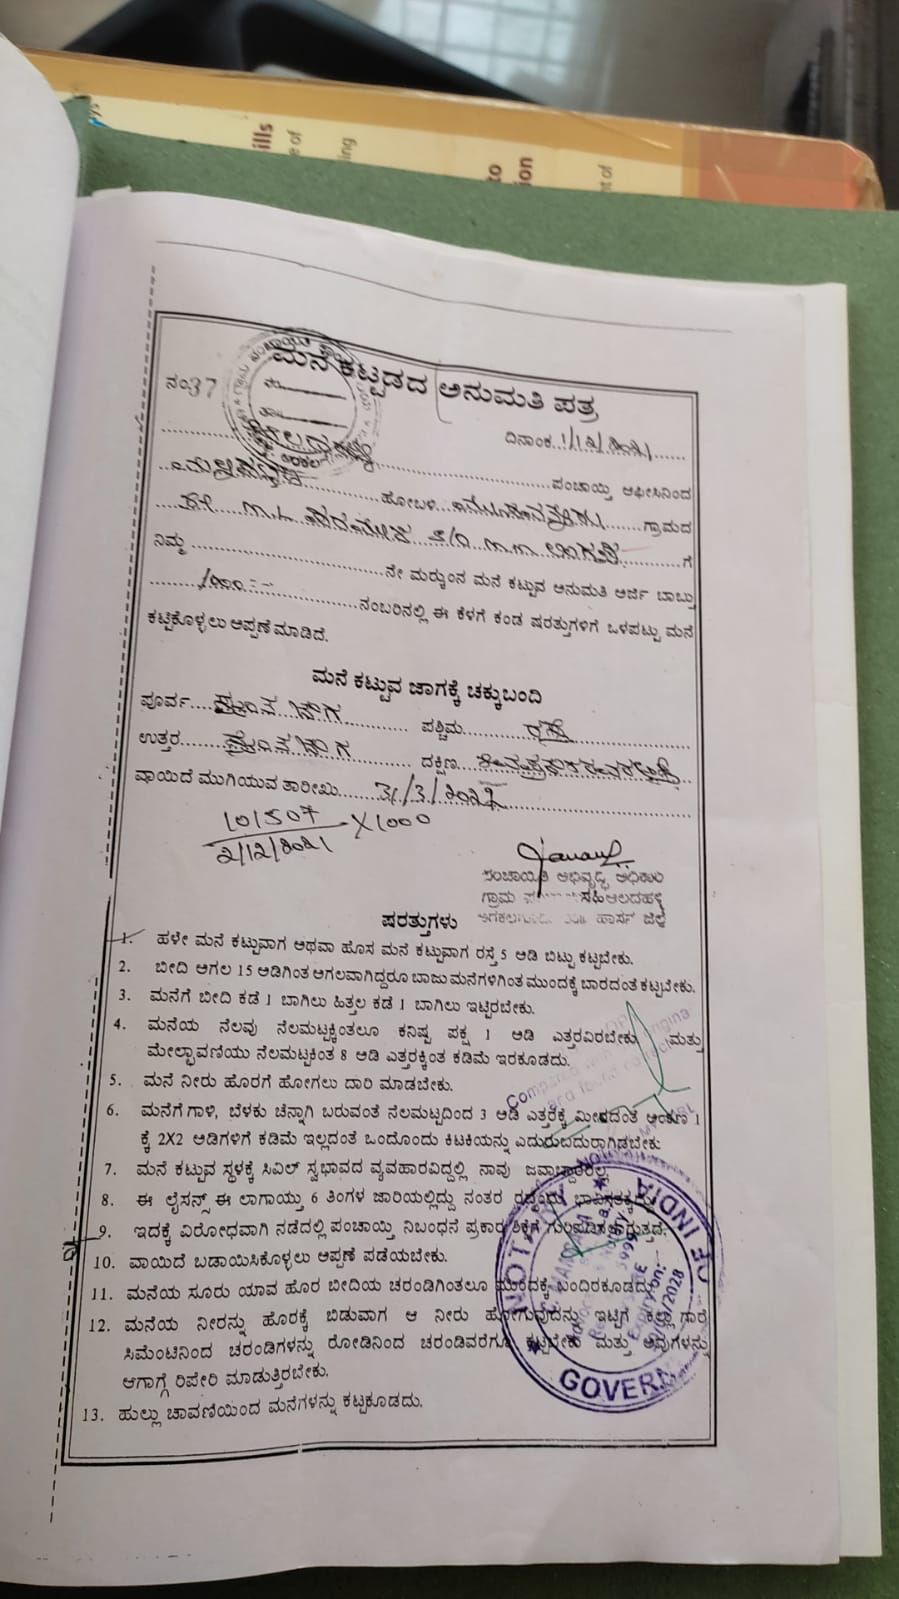 ills
e of
ing
to
ion
t of
ಮನೆ ಕಟ್ಟಡದ ಅನುಮತಿ ಪತ್ರ
ನಂ:37
ದಿನಾಂಕ..1/12/2021......
ಪಂಚಾಯ್ತಿ ಆಫೀಸಿನಿಂದ
ಹೋಬಳಿ ಗ್ರಾಮದ
ಗೆ
ನಿಮ್ಮ ನೇ ಮರ್‍ಯಂನ ಮನೆ ಕಟ್ಟುವ ಅನುಮತಿ ಅರ್ಜಿ ಬಾಬ್ತು
ನಂಬರಿನಲ್ಲಿ ಈ ಕೆಳಗೆ ಕಂಡ ಷರತ್ತುಗಳಿಗೆ ಒಳಪಟ್ಟು ಮನೆ
ಕಟ್ಟಿಕೊಳ್ಳಲು ಅಪ್ಪಣೆ ಮಾಡಿದೆ.
ಮನೆ ಕಟ್ಟುವ ಜಾಗಕ್ಕೆ ಚಕ್ಕುಬಂದಿ
ಪೂರ್ವ ಪಶ್ಚಿಮ ರಸ್ತೆ
ಉತ್ತರ ದಕ್ಷಿಣ
ವಾಯಿದೆ ಮುಗಿಯುವ ತಾರೀಖು.....31/3/2022
101507 X1000
2/12/2021
ಪಂಚಾಯತಿ ಅಭಿವೃದ್ಧಿ ಅಧಿಕಾರಿ
ಗ್ರಾಮ
ಹಾಸನ ಜಿಲ್ಲೆ
ಷರತ್ತುಗಳು
1. ಹಳೇ ಮನೆ ಕಟ್ಟುವಾಗ ಅಥವಾ ಹೊಸ ಮನೆ ಕಟ್ಟುವಾಗ ರಸ್ತೆ 5 ಅಡಿ ಬಿಟ್ಟು ಕಟ್ಟಬೇಕು.
2. ಬೀದಿ ಅಗಲ 15 ಅಡಿಗಿಂತ ಅಗಲವಾಗಿದ್ದರೂ ಬಾಜು ಮನೆಗಳಿಗಿಂತ ಮುಂದಕ್ಕೆ ಬಾರದಂತೆ ಕಟ್ಟಬೇಕು.
3. ಮನೆಗೆ ಬೀದಿ ಕಡೆ 1 ಬಾಗಿಲು ಹಿತ್ತಲ ಕಡೆ 1 ಬಾಗಿಲು ಇಟ್ಟಿರಬೇಕು.
4. ಮನೆಯ ನೆಲವು ನೆಲಮಟ್ಟಕ್ಕಿಂತಲೂ ಕನಿಷ್ಟ ಪಕ್ಷ 1 ಅಡಿ ಎತ್ತರವಿರಬೇಕು ಮತ್ತು
ಮೇಲ್ಛಾವಣಿಯು ನೆಲಮಟ್ಟಕಿಂತ 8 ಅಡಿ ಎತ್ತರಕ್ಕಿಂತ ಕಡಿಮೆ ಇರಕೂಡದು.
5. ಮನೆ ನೀರು ಹೊರಗೆ ಹೋಗಲು ದಾರಿ ಮಾಡಬೇಕು.
6. ಮನೆಗೆ ಗಾಳಿ, ಬೆಳಕು ಚೆನ್ನಾಗಿ ಬರುವಂತೆ ನೆಲಮಟ್ಟದಿಂದ 3 ಅಡಿ ಎತ್ತರಕ್ಕೆ ಮೀರದಂತೆ ಅಂಕಣ 1
ಕ್ಕೆ 2X2 ಅಡಿಗಳಿಗೆ ಕಡಿಮೆ ಇಲ್ಲದಂತೆ ಒಂದೊಂದು ಕಿಟಕಿಯನ್ನು ಎದುರುಬದುರಾಗಿಡಬೇಕು
7. ಮನೆ ಕಟ್ಟುವ ಸ್ಥಳಕ್ಕೆ ಸಿವಿಲ್ ಸ್ವಭಾವದ ವ್ಯವಹಾರವಿದ್ದಲ್ಲಿ ನಾವು ಜವಾಬ್ದಾರರಲ್ಲ
8. ಈ ಲೈಸನ್ಸ್ ಈ ಲಾಗಾಯ್ತು 6 ತಿಂಗಳ ಜಾರಿಯಲ್ಲಿದ್ದು ನಂತರ ರದ್ದೆಂದು ಭಾವಿಸತಕ್ಕದ್ದು
9. ಇದಕ್ಕೆ ವಿರೋಧವಾಗಿ ನಡೆದಲ್ಲಿ ಪಂಚಾಯ್ತಿ ನಿಬಂಧನೆ ಪ್ರಕಾರ ಶಿಕ್ಷೆಗೆ ಗುರಿಪಡಿಸಲಾಗುತ್ತದೆ.
10. ವಾಯಿದೆ ಬಡಾಯಿಸಿಕೊಳ್ಳಲು ಅಪ್ಪಣೆ ಪಡೆಯಬೇಕು.
11. ಮನೆಯ ಸೂರು ಯಾವ ಹೊರ ಬೀದಿಯ ಚರಂಡಿಗಿಂತಲೂ ಮುಂದಕ್ಕೆ ಬಂದಿರಕೂಡದು.
12. ಮನೆಯ ನೀರನ್ನು ಹೊರಕ್ಕೆ ಬಿಡುವಾಗ ಆ ನೀರು ಹೋಗುವುದನ್ನು ಇಟ್ಟಿಗೆ ಕಲ್ಲು ಗಾರೆ
ಸಿಮೆಂಟಿನಿಂದ ಚರಂಡಿಗಳನ್ನು ರೋಡಿನಿಂದ ಚರಂಡಿವರೆಗೂ ಕಟ್ಟಬೇಕು ಮತ್ತು ಅವುಗಳನ್ನು
ಆಗಾಗ್ಗೆ ರಿಪೇರಿ ಮಾಡುತ್ತಿರಬೇಕು.
13. ಹುಲ್ಲು ಚಾವಣಿಯಿಂದ ಮನೆಗಳನ್ನು ಕಟ್ಟಕೂಡದು.
NOTA
OF INDIA
GOVER